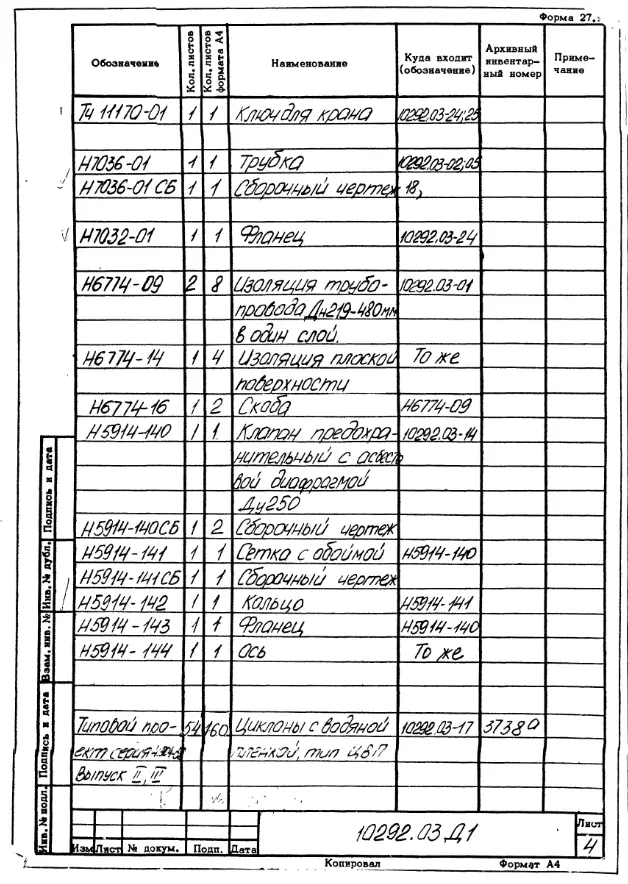 Форма 27.
Обозначение Кол. листов Кол. листов формата А4 Наименование Куда входит (обозначение) Архивный инвентар-ный номер Приме-чание
Тч 11170-01 1 1 Ключ для крана 10292.03-24;25
Н7036-01 1 1 Трубка 10292.03-02,05
Н7036-01 СБ 1 1 Сборочный чертеж 18,
Н7032-01 1 1 Фланец 10292.03-24
Н6774-09 2 8 Изоляция трубо- 10292.03-01
провода Дн219-480мм
в один слой.
Н6774-14 1 4 Изоляция плоской То же
поверхности
Н6774-16 1 2 Скоба Н6774-09
Н5914-140 1 1 Клапан предохра- 10292.03-14
нительный с асбест
вой диафрагмой
Ду250
Н5914-140СБ 1 2 Сборочный чертеж
Н5914-141 1 1 Сетка с обоймой Н5914-140
Н5914-141СБ 1 1 Сборочный чертеж
Н5914-142 1 1 Кольцо Н5914-141
Н5914-143 1 1 Фланец Н5914-140
Н5914-144 1 1 Ось То же
Типовой про- 54 160 Циклоны с водяной 10292.03-17 3738а
ект серия пленкой, тип ЦВП
Выпуск II, IV
Подпись и дата
Инв. № дубл.
Взам. инв. №
Подпись и дата
Инв. № подл.
Изм Лист № докум. Подп. Дата
10292.03 Д1
Лист
4
Копировал Формат А4